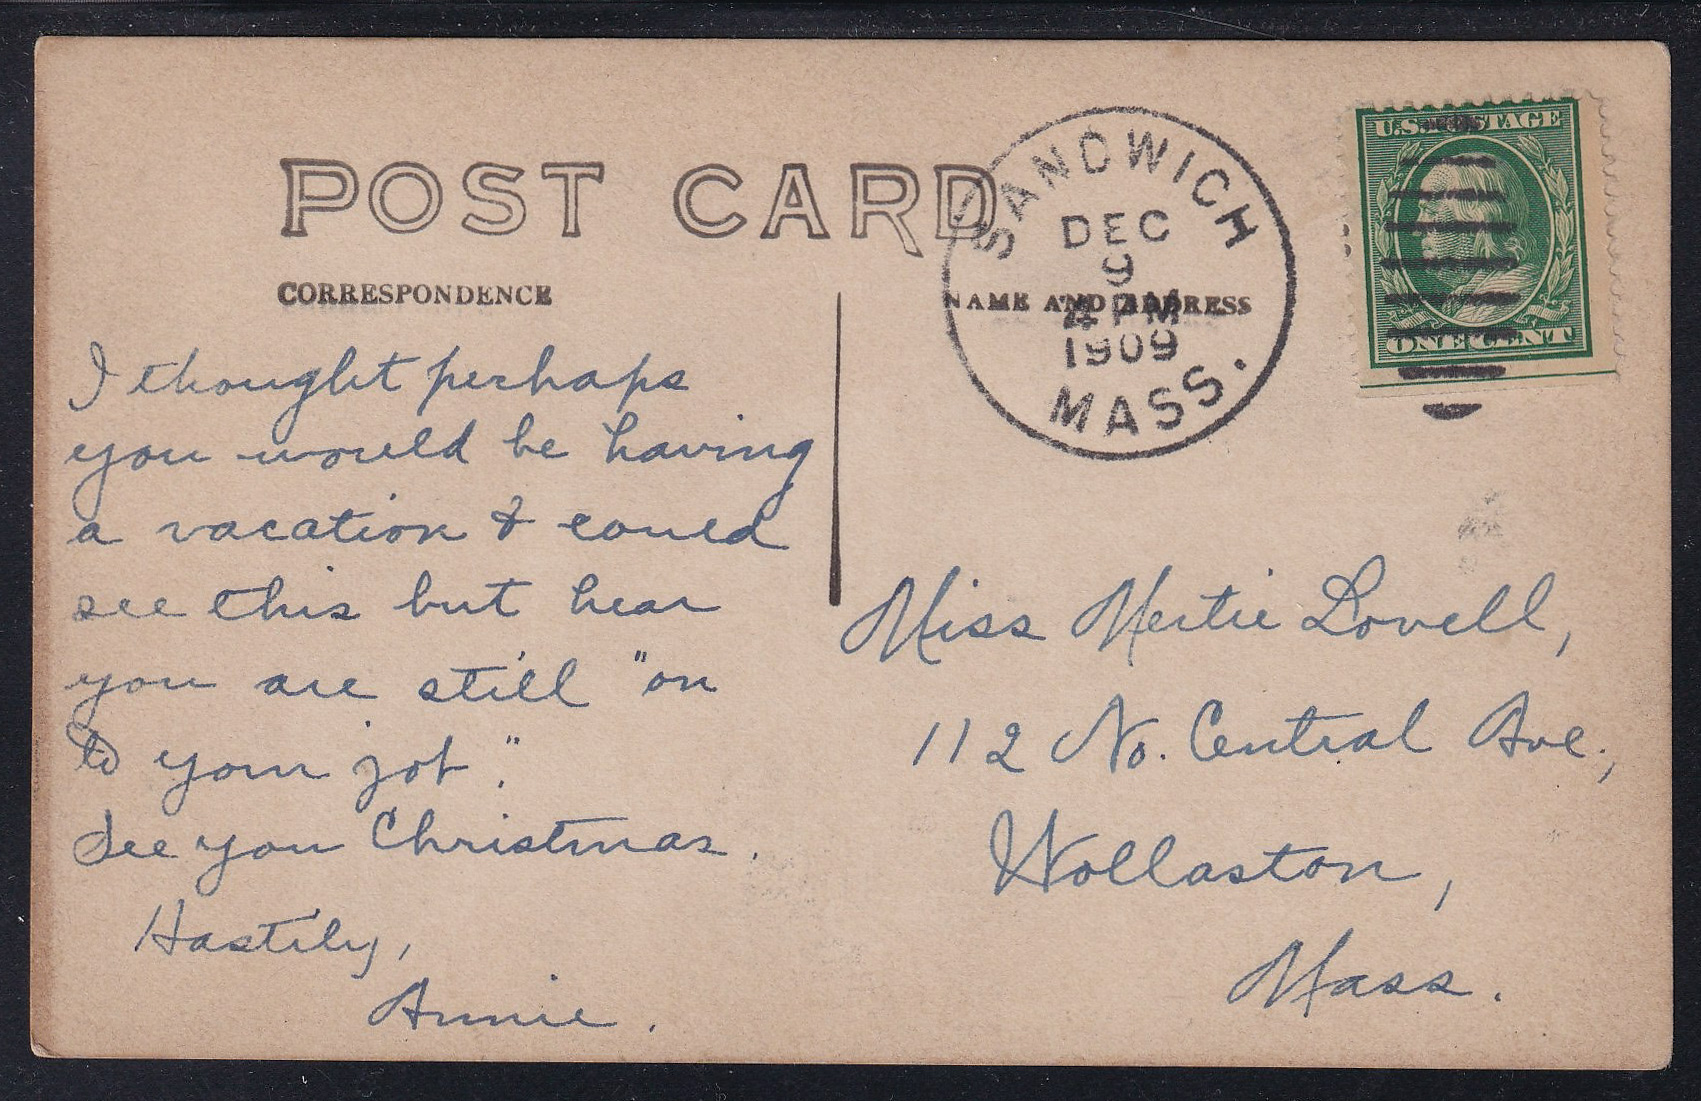 POST CARD
CORRESPONDENCE
NAME AND ADDRESS
SANDWICH
DEC
9
4 PM
1909
MASS.
U.S. POSTAGE
ONE CENT
I thought perhaps
you would be having
a vacation & could
see this but hear
you are still "on
to your job."
See you Christmas.
Hastily,
Annie.
Miss Mertie Lovell,
112 No. Central Ave.,
Wollaston,
Mass.